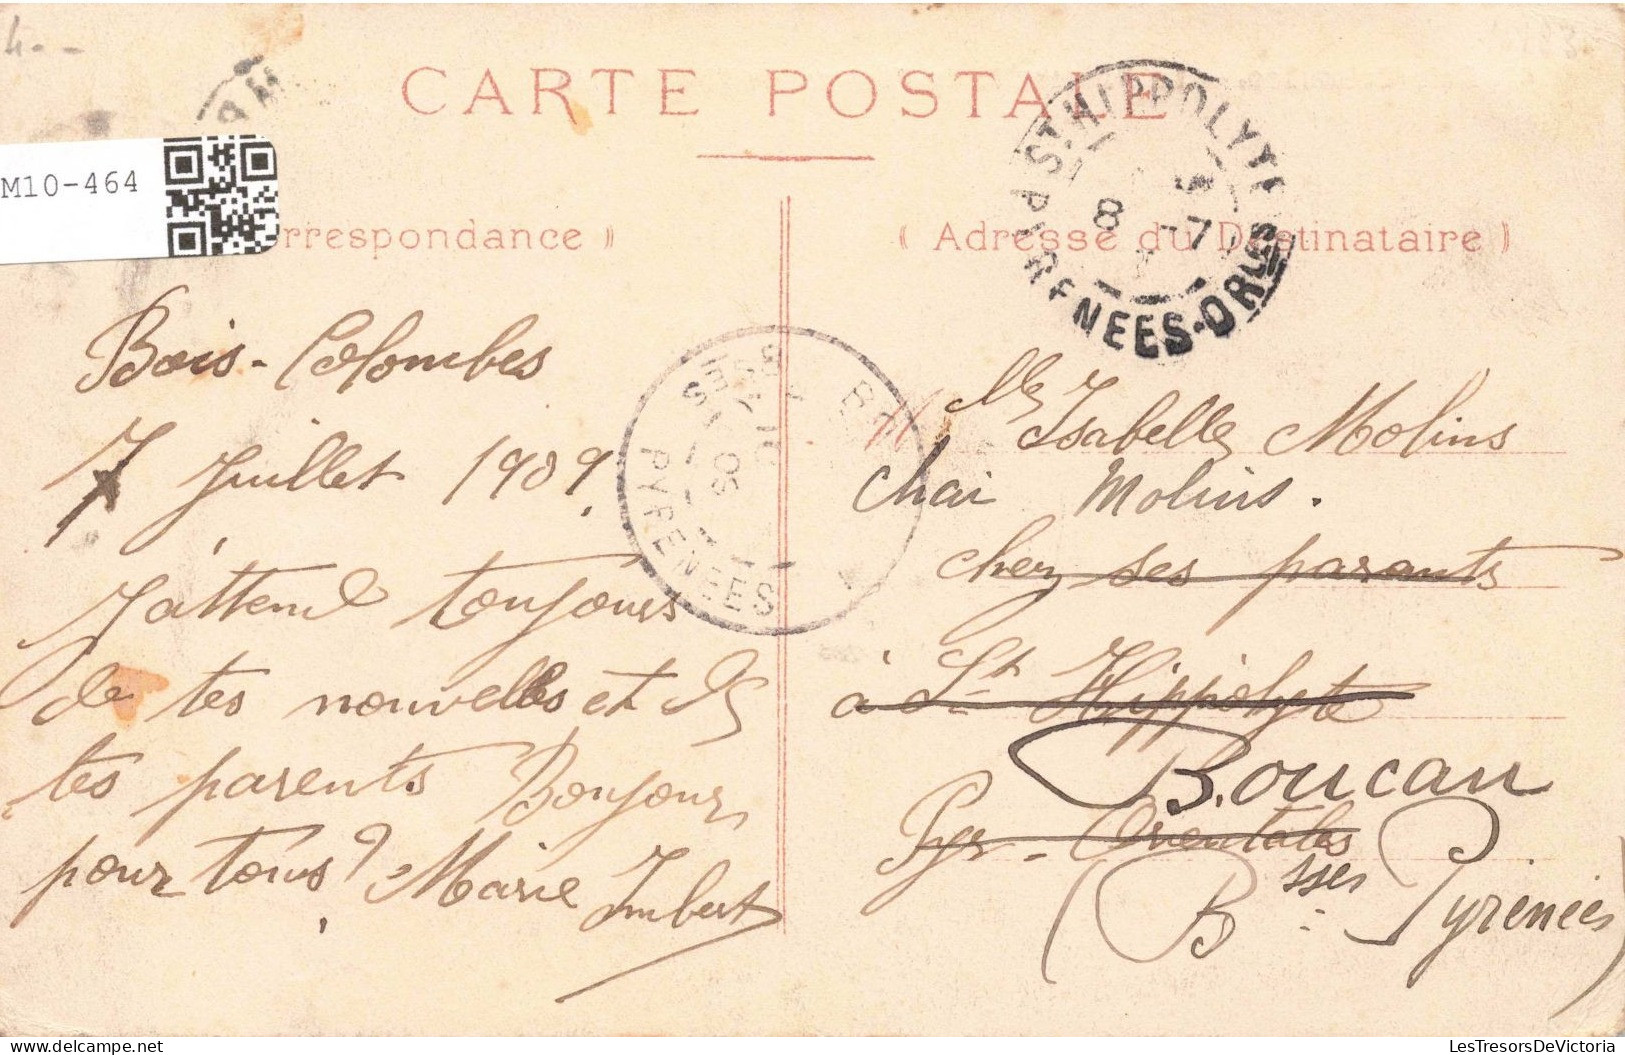 CARTE POSTALE
M10-464
rrespondance )
( Adresse du Destinataire )
ST HIPPOLYTE
8 -7
PYRENEES-ORLES
BSSES PYRENEES
Bois-Colombes
7 Juillet 1909.
J'attend toujours
de tes nouvelles et
tes parents Bonjour
pour tous
Marie Imbert
Mlle Isabelle Molins
Chai Molins.
chez ses parants
à St Hippolyte
Boucau
Pyr-Orientales
(Bsses Pyrénées)
LesTresorsDeVictoria